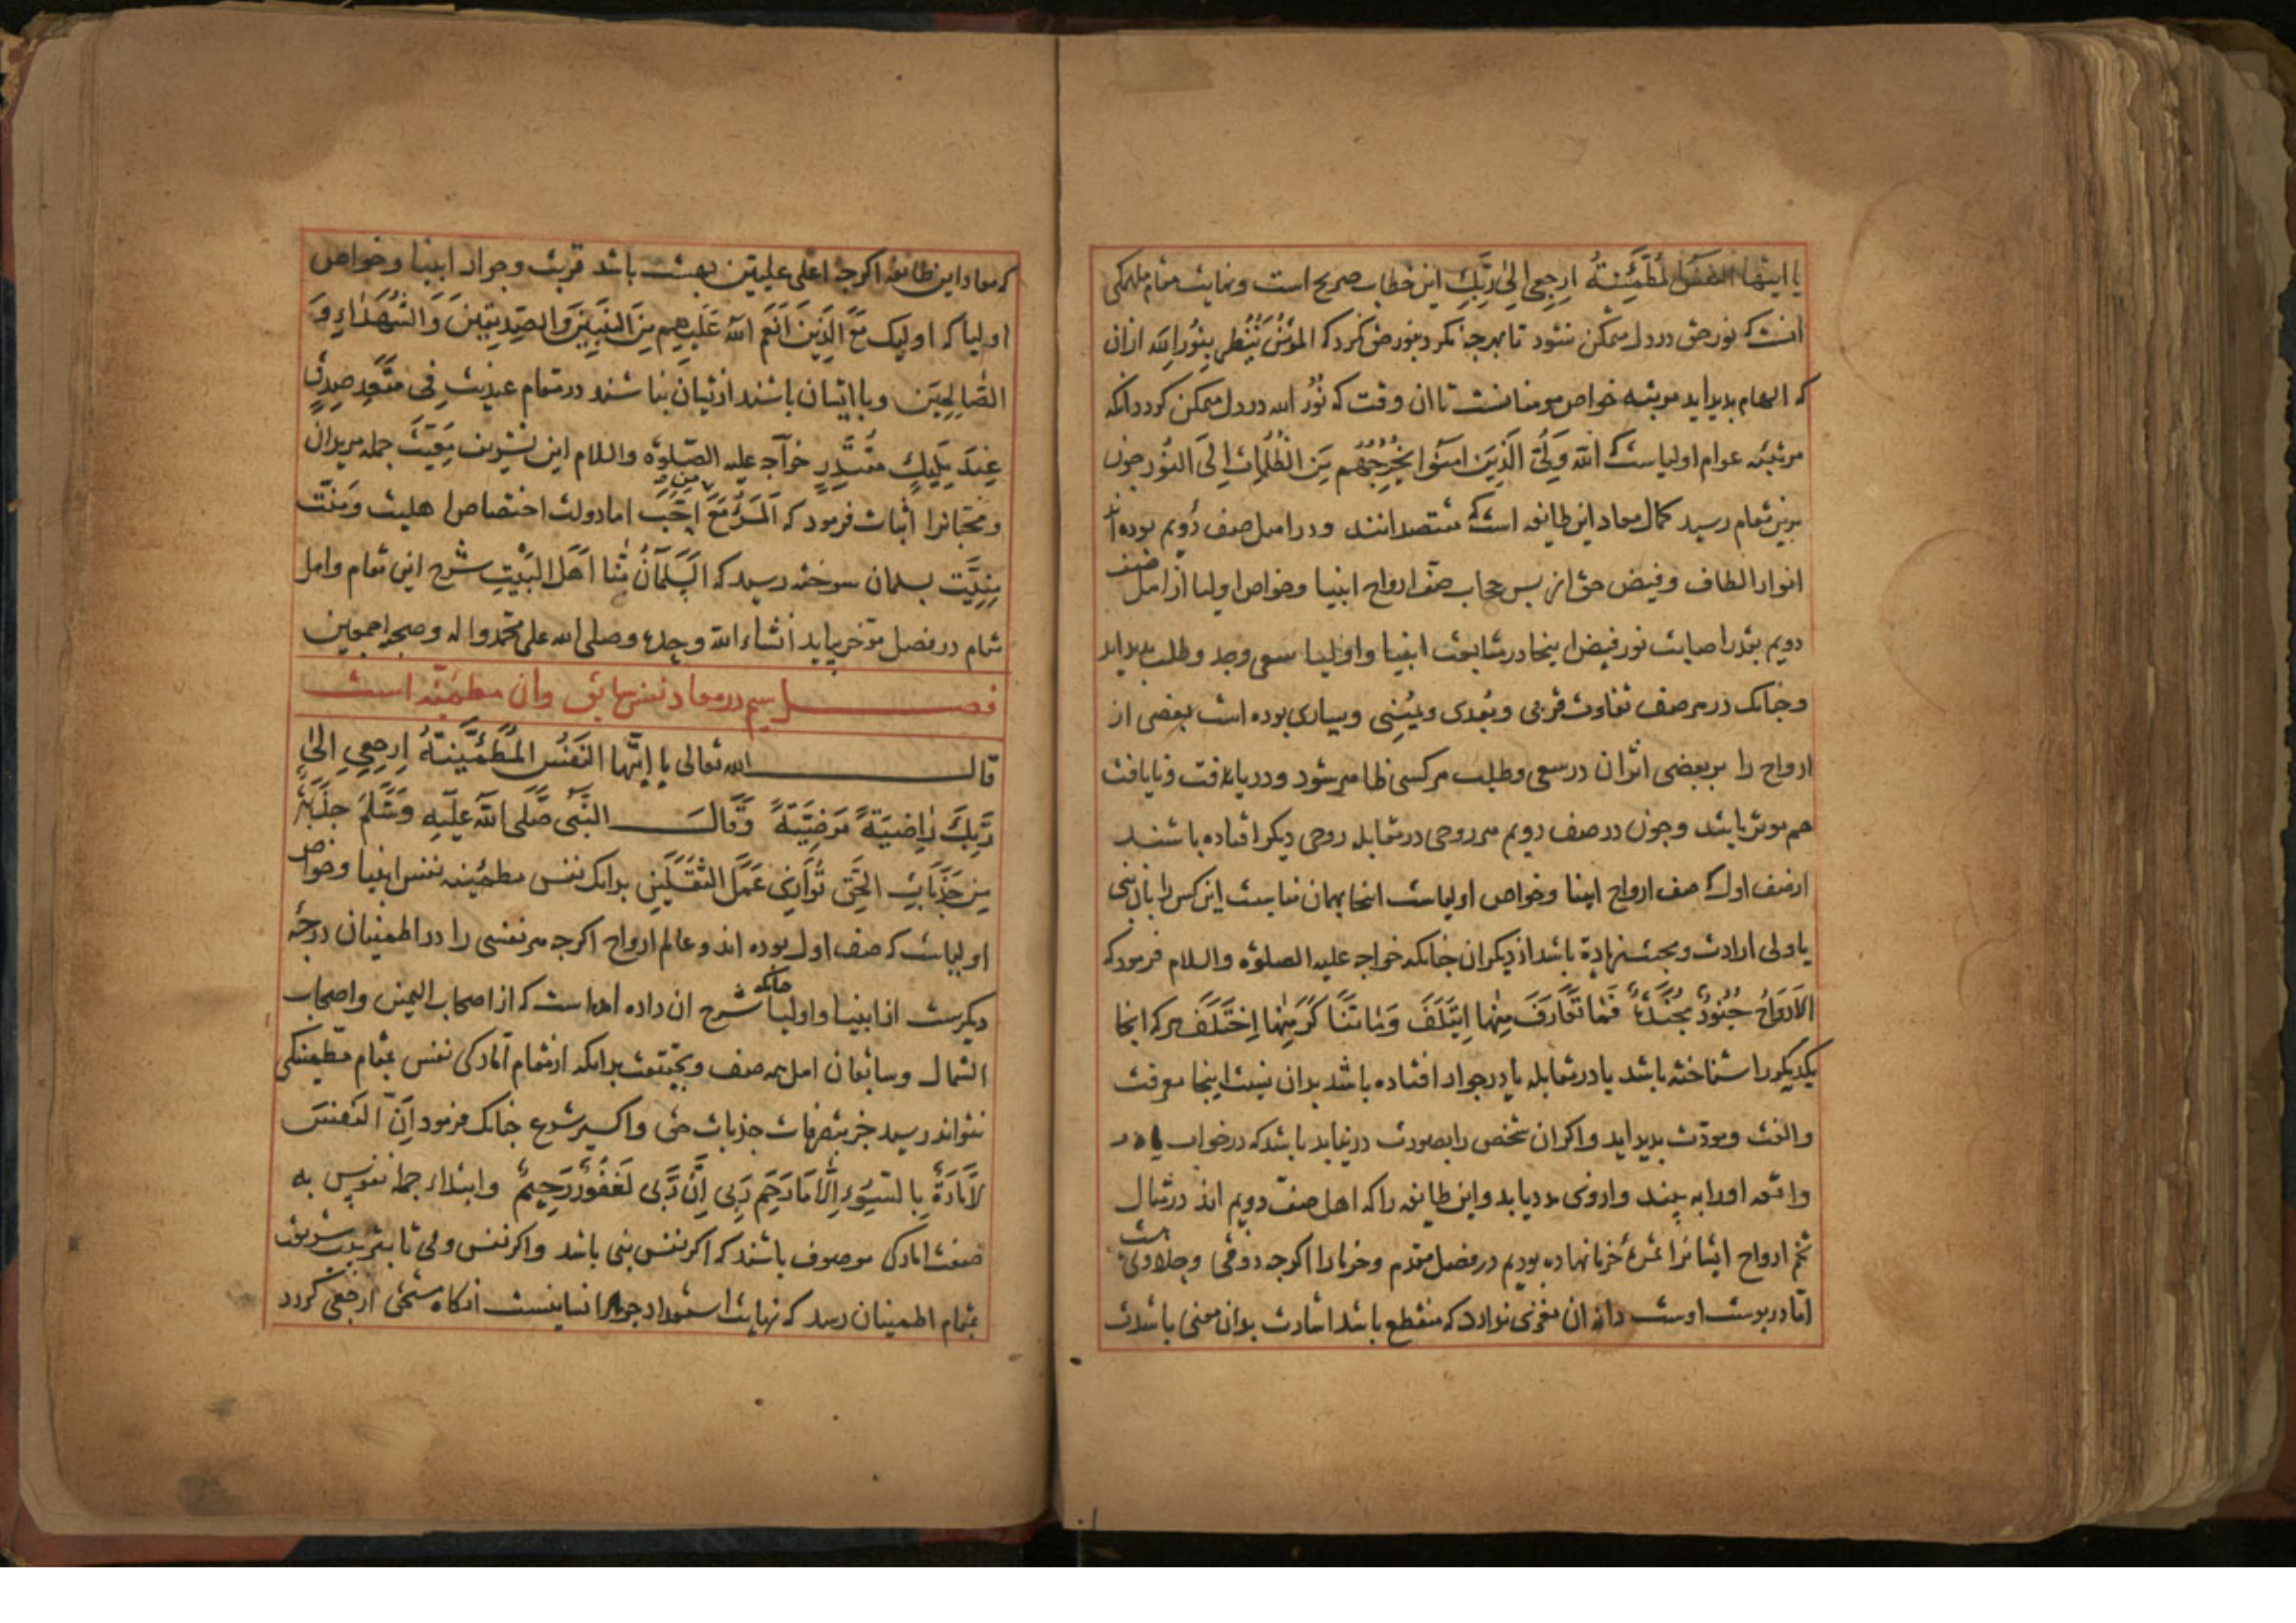 یا ایتها النفس المطمئنة ارجعی الی ربک این خطاب صریح است ونهایت مقام ملهمکی
انست که نور حق در دل متمکن شود تا بهر جه نکرد بنور حق نکرد که المؤمن ینظر بنور الله ازان
که الهام بدید اید مرتبه خواص مومنانست تا ان وقت که نور الله در دل متمکن کردد انکه
مرتبه عوام اولیاست که الله ولی الذین امنوا یخرجهم من الظلمات الی النور جون
برین مقام رسید کمال معاد این طایفه است که مقتصدانند ودر اصل صف دویم بوده اند
انوار الطاف وفیض حق از بس حجاب صف ارواح انبیا وخواص اولیا از اهل صف
دویم بقدر اصابت نور فیض اینجا در متابعت انبیا واولیا سعی وجد وطلب بدید اید
وجنانک در هر صف تفاوت قربی وبعدی ویمینی ویساری بوده است بعضی از
ارواح را بر بعضی اثر ان در سعی وطلب هر کسی ظاهر شود ودر یافت ونایافت
هم موثر باشد وجون در صف دویم هر روحی در مقابله روحی دیکر افتاده باشند
از صف اول که صف ارواح انبیا وخواص اولیاست اینجا بهمان مناسبت این کس را بان نبی
یا ولی ارادت ومحبت زیاده باشد از دیکران جنانکه خواجه علیه الصلوة والسلام فرمود که
الارواح جنود مجندة فما تعارف منها ایتلف وما تناکر منها اختلف هر که انجا
یکدیکر را شناخته باشد یا در مقابله یا در جوار افتاده باشد بدان نسبت اینجا معرفت
والفت ومودت بدید اید واکر ان شخص را بصورت در نیابد باشد که در خواب یا در
واقعه اورا به بیند وازوی مدد یابد واین طایفه را که اهل صف دویم اند در مثال
تخم ارواح ایشانرا ثمرۀ خرما نهاده بودیم در فصل مقدم وخرما را اکرجه ذوقی وحلاوتی است
اما در بوست اوست دانه ان مغزی ندارد که منتفع باشد اشارت بدان معنی باشد
که معاد این طایفه اکرجه اعلی علیین بهشت باشد قربت وجوار انبیا وخواص
اولیا که اولیک مع الذین انعم الله علیهم من النبیین والصدیقین والشهداء و
الصالحین وبا ایشان باشند از ایشان نباشند در مقام عندیت فی مقعد صدق
عند ملیک مقتدر خواجه علیه الصلوة والسلام این تشریف معیت جمله مریدان
ومحبانرا اثبات فرمود که المرء مع من احب اما دولت اختصاص اهلیت ومنت
منیت بسلمان سوخته رسید که السلمان منا اهل البیت شرح این مقام واهل
مقام در فصل مؤخر بیاید انشاء الله وحده وصلی الله علی محمد واله وصحبه اجمعین
فصل سیم در معاد نفس سابق وان مطمئنه است
قال الله تعالی یا ایتها النفس المطمئنة ارجعی الی
ربک راضیة مرضیة وقال النبی صلی الله علیه وسلم جذبة
من جذبات الحق توازی عمل الثقلین بدانک نفس مطمئنه نفس انبیا وخواص
اولیاست که صف اول بوده اند در عالم ارواح اکرجه هر نفسی را در اطمینان درجه
دیکرست از انبیا واولیا جنانکه شرح ان داده امده است که از اصحاب الیمین واصحاب
الشمال وسابقان اهل سه صف وبحقیقت بدانکه از مقام امارکی نفس بمقام مطمئنکی
نتواند رسید جز بتصرفات جذبات حق واکسیر شرع جنانک فرمود ان النفس
لامارة بالسوء الا ما رحم ربی ان ربی لغفور رحیم وابتداء جمله نفوس به
صفت امارکی موصوف باشند که اکر نفس نبی باشد واکر نفس ولی تا بتربیت شریعت
بمقام اطمینان رسد که نهایت استعداد جوهر انسانیست انکاه مستحق ارجعی کردد